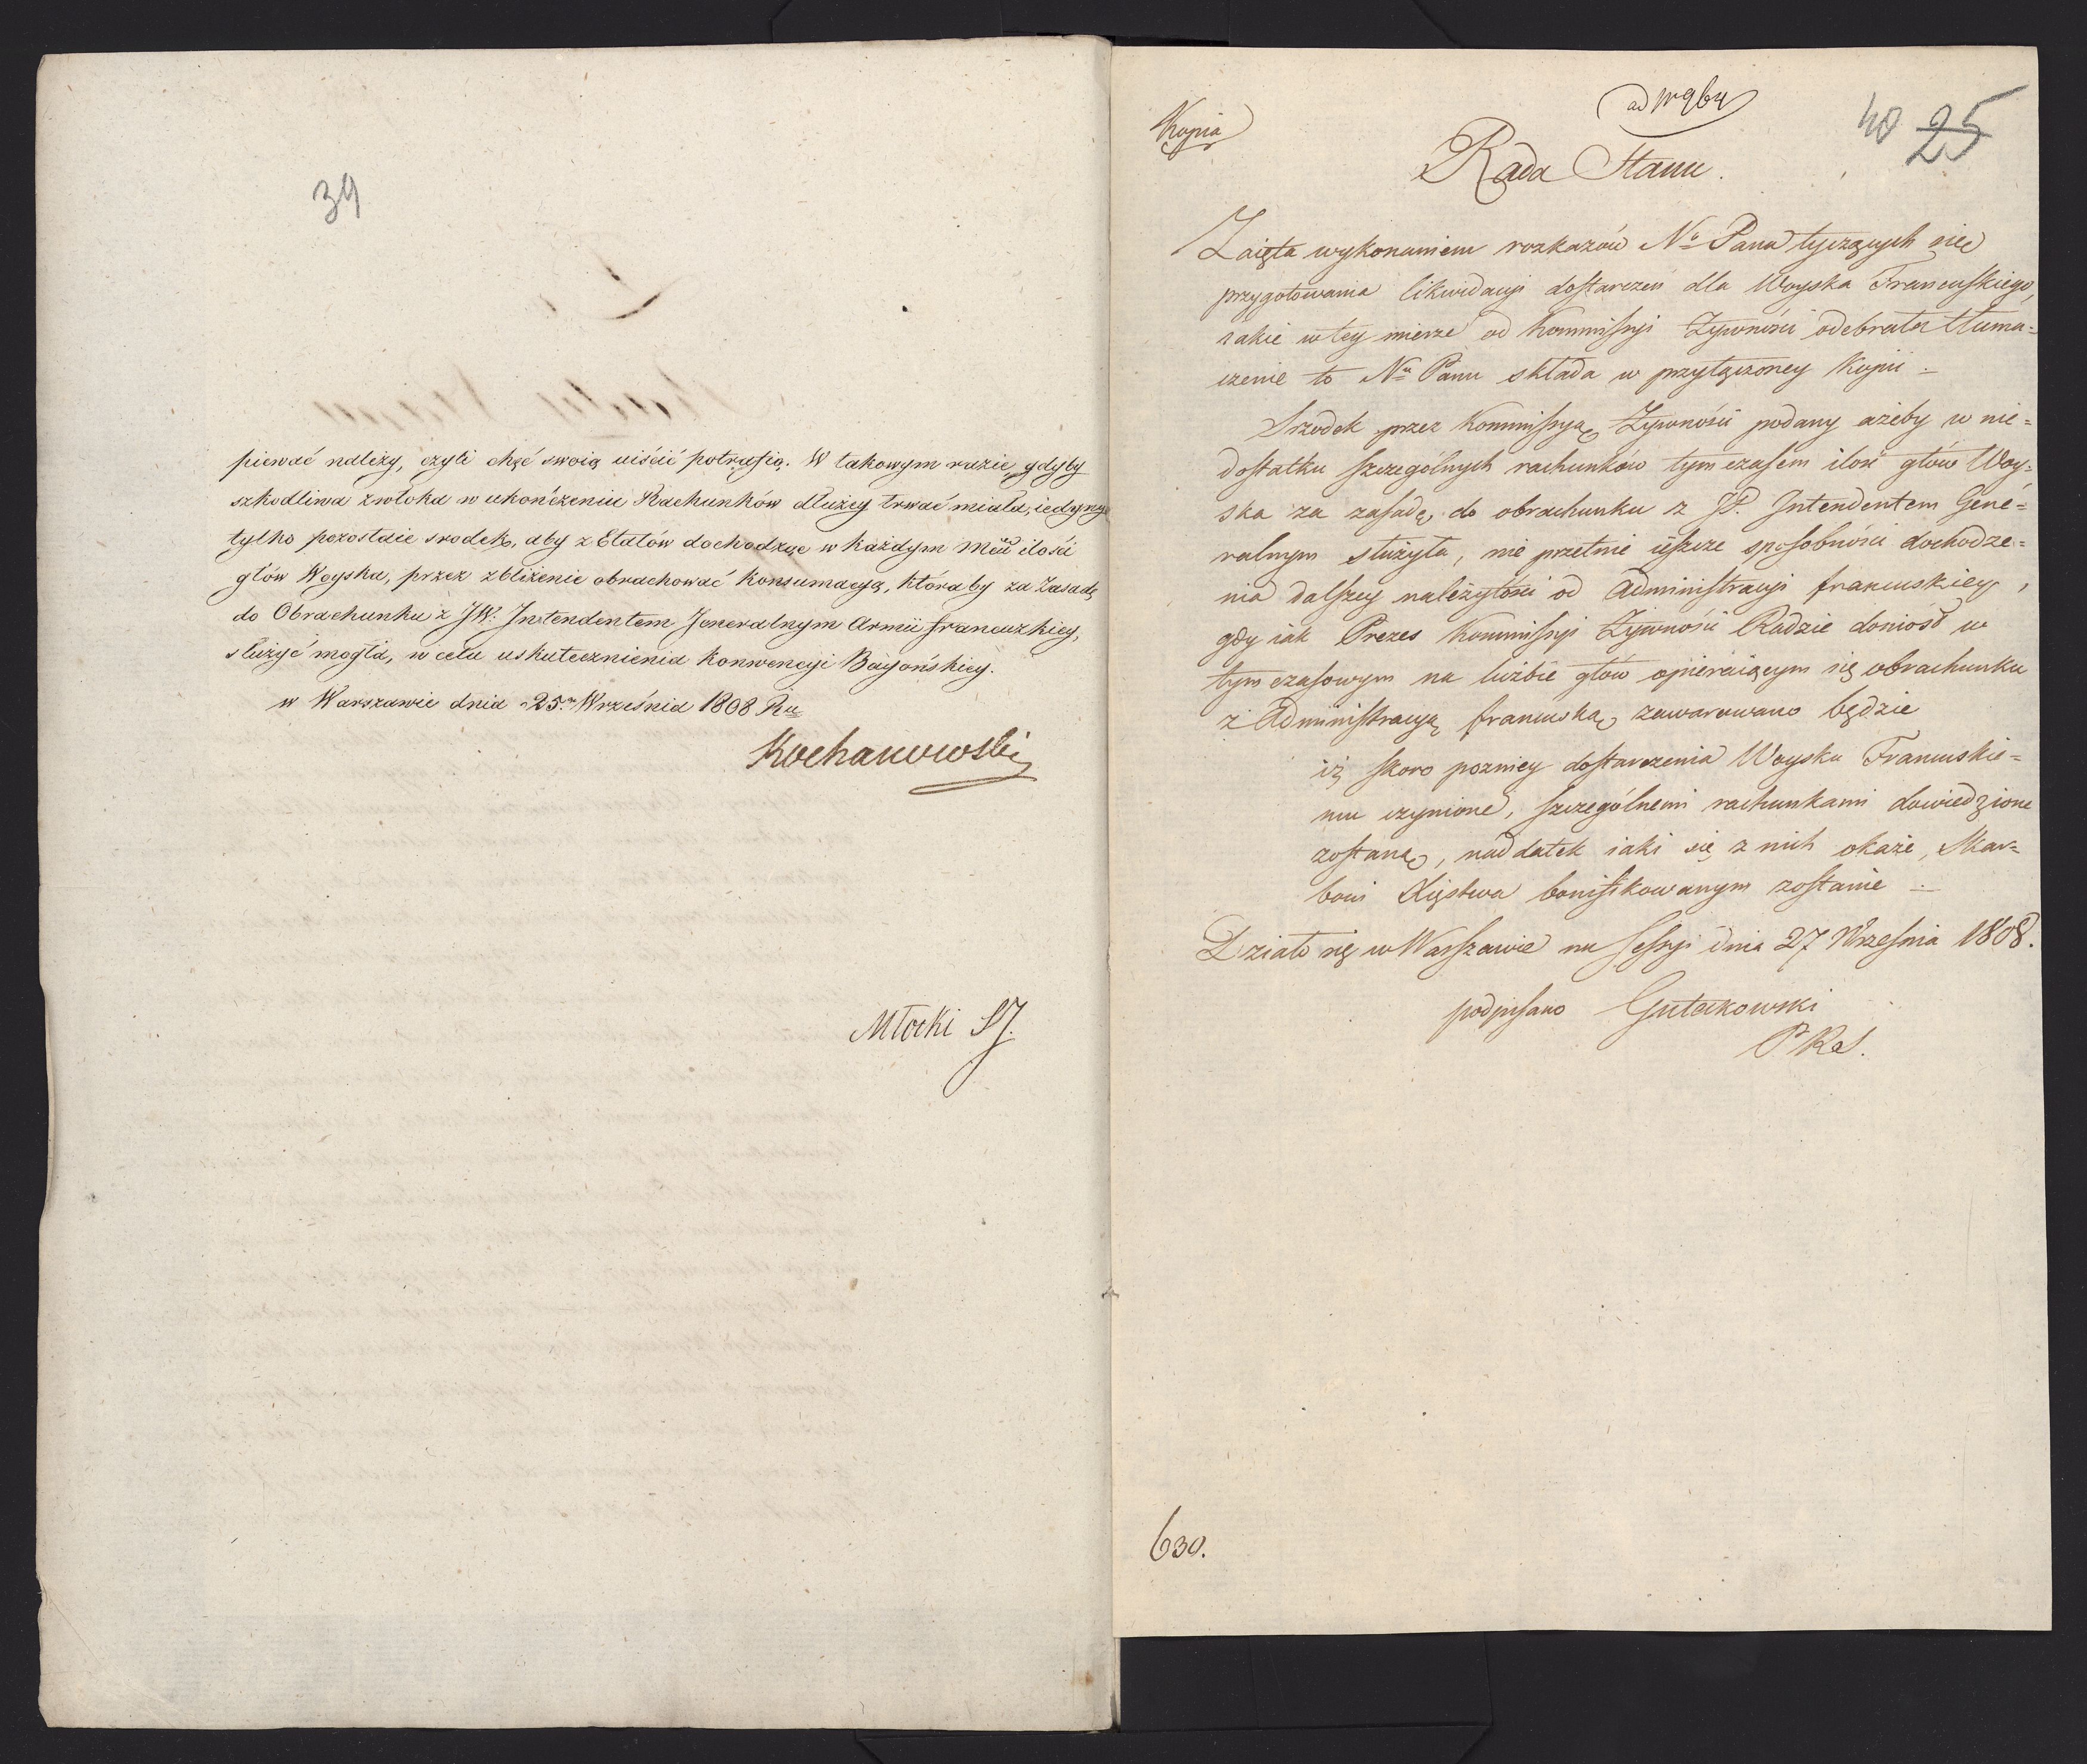 39
piewać należy, czyli chęć swoią uiścić potrafią. W takowym razie, gdyby
szkodliwa zwłoka w ukończeniu Rachunków dłużey trwać miała, iedyny
tylko pozostaie srodek, aby z Etatów dochodząc w każdym Mcu ilość
głów Woyska, przez zbliżenie obrachować Konsumacyą, któraby za Zasadę
do Obrachunku z JW. Intendentem Jeneralnym Armii francuzkiey,
służyć mogła, w celu uskutecznienia Konwencyi Bayońskiey.
w Warszawie dnia 25. Września 1808 Ru
Kochanowski
Młocki SJ.
Kopia
ad
40 25
Rada Stanu.
Zaięta wykonaniem rozkazów No Pana tyczących się
przygotowania likwidacyi dostarczeń dla Woyska Francuskiego,
iakie w tey mierze od Kommissyi Żywności odebrała tłuma=
czenie to Nu Panu składa w przyłączoney Kopii .
Srzodek przez Kommissyą Żywności podany ażeby w nie=
dostatku szczególnych rachunków tym czasem ilość głów Woy=
ska za zasadę do obrachunku z JP. Intendentem Gene=
ralnym służyła, nie przetnie ieszcze sposobności dochodze=
nia dalszey należytości od Administracyi francuskiey,
gdy iak Prezes Kommissyi Żywności Radzie doniósł w
tym czasowym na liczbie głów opieraiącym się obrachunku
z Administracyą francuską zawarowano będzie
iż skoro pozniey dostarczenia Woysku Francuskie=
mu czynione, szczególnemi rachunkami dowiedzione
zostaną, naddatek iaki się z nich okaże, Skar=
bowi Xięstwa bonifikowanym zostanie .
Działo się w Warszawie na Sessyi dnia 27 Września 1808.
podpisano Gutakowski
P Ra S.
630.